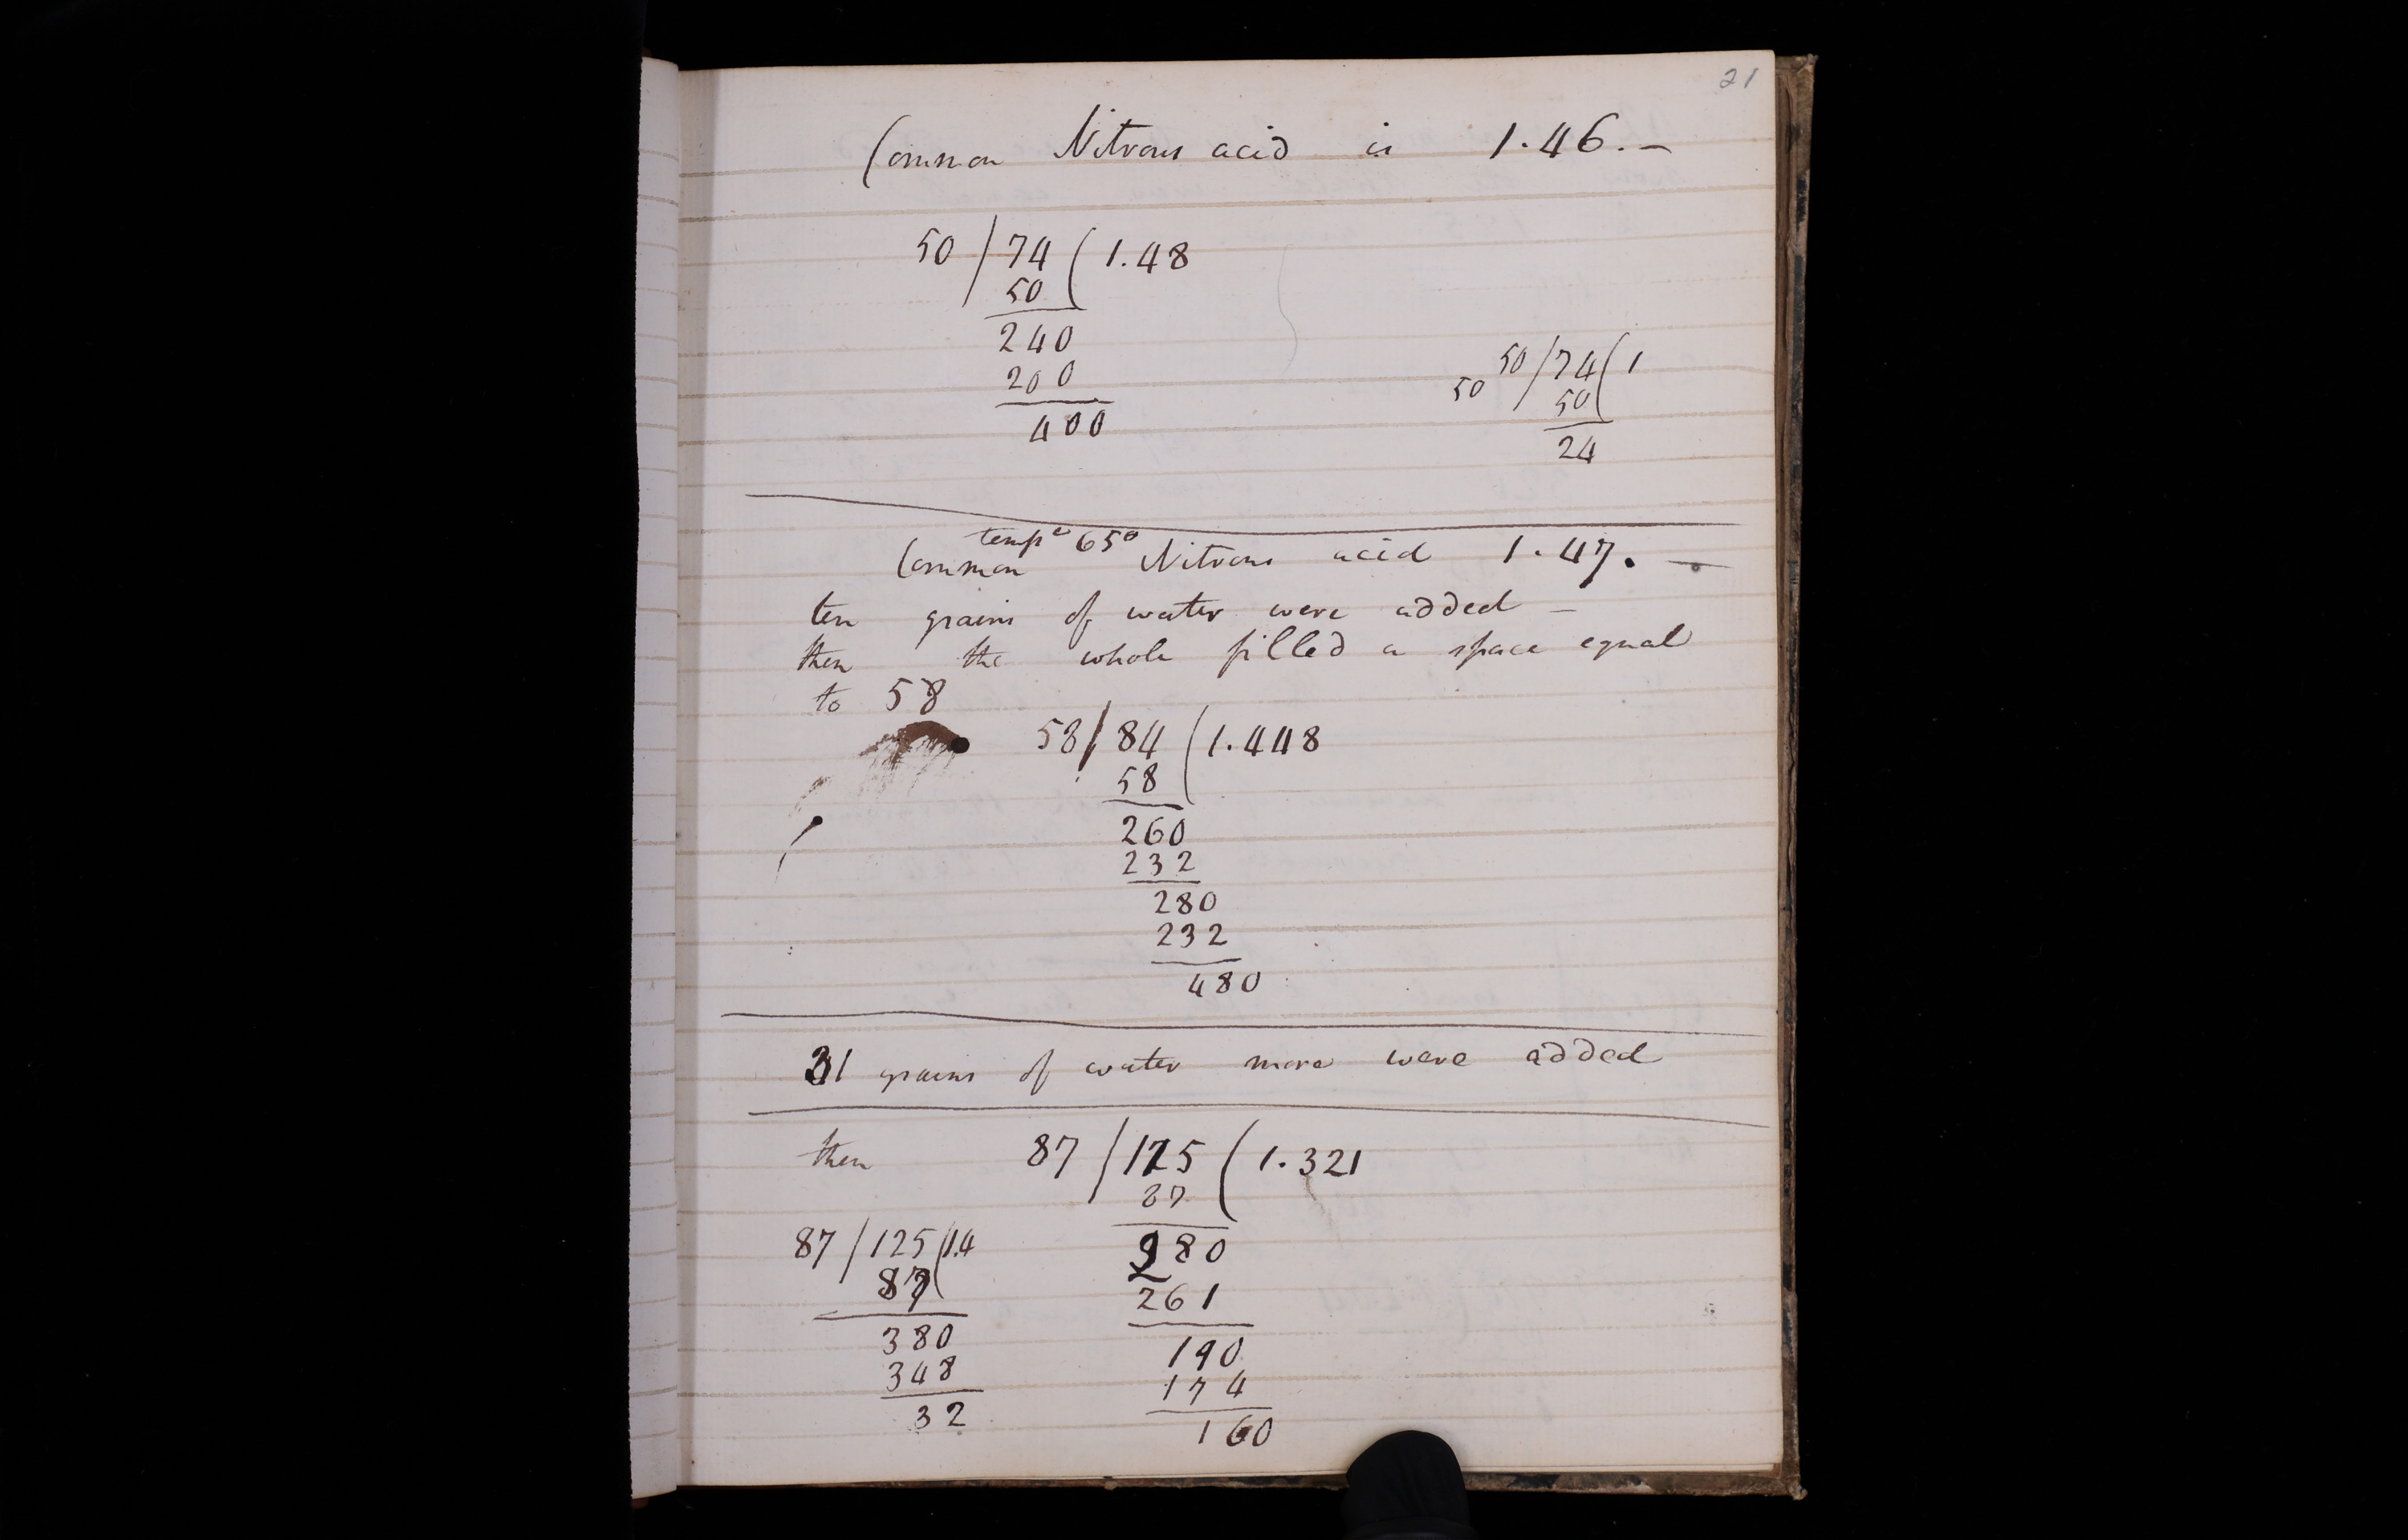 21
Common Nitrous acid is 1.46.—
50 / 74 ( 1.48
50
240
200
400
50 / 74 ( 1
50
50
24
tempe 65°
Common Nitrous acid 1.47. —
ten grains of water were added —
then the whole filled a space equal
to 58
58 / 84 ( 1.448
58
260
232
280
232
480
31 grains of water more were added
then 87 / 125 ( 1.321
87
280
261
190
174
160
87 / 125 ( 1.4
87
380
348
32